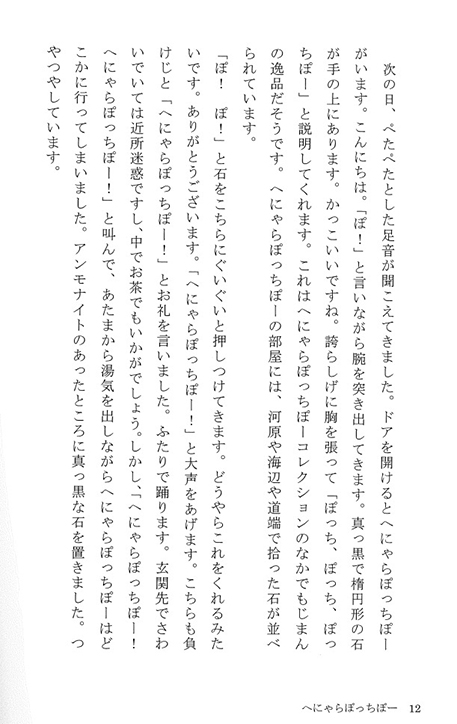 次の日、ぺたぺたとした足音が聞こえてきました。ドアを開けるとへにゃらぽっちぽー
がいます。こんにちは。「ぽ！」と言いながら腕を突き出してきます。真っ黒で楕円形の石
が手の上にあります。かっこいいですね。誇らしげに胸を張って「ぽっち、ぽっち、ぽっ
ちぽー」と説明してくれます。これはへにゃらぽっちぽーコレクションのなかでもじまん
の逸品だそうです。へにゃらぽっちぽーの部屋には、河原や海辺や道端で拾った石が並べ
られています。
「ぽ！　ぽ！」と石をこちらにぐいぐいと押しつけてきます。どうやらこれをくれるみた
いです。ありがとうございます。「へにゃらぽっちぽー！」と大声をあげます。こちらも負
けじと「へにゃらぽっちぽー！」とお礼を言いました。ふたりで踊ります。玄関先でさわ
いでいては近所迷惑ですし、中でお茶でもいかがでしょう。しかし、「へにゃらぽっちぽー！
へにゃらぽっちぽー！」と叫んで、あたまから湯気を出しながらへにゃらぽっちぽーはど
こかに行ってしまいました。アンモナイトのあったところに真っ黒な石を置きました。つ
やつやしています。
へにゃらぽっちぽー　12